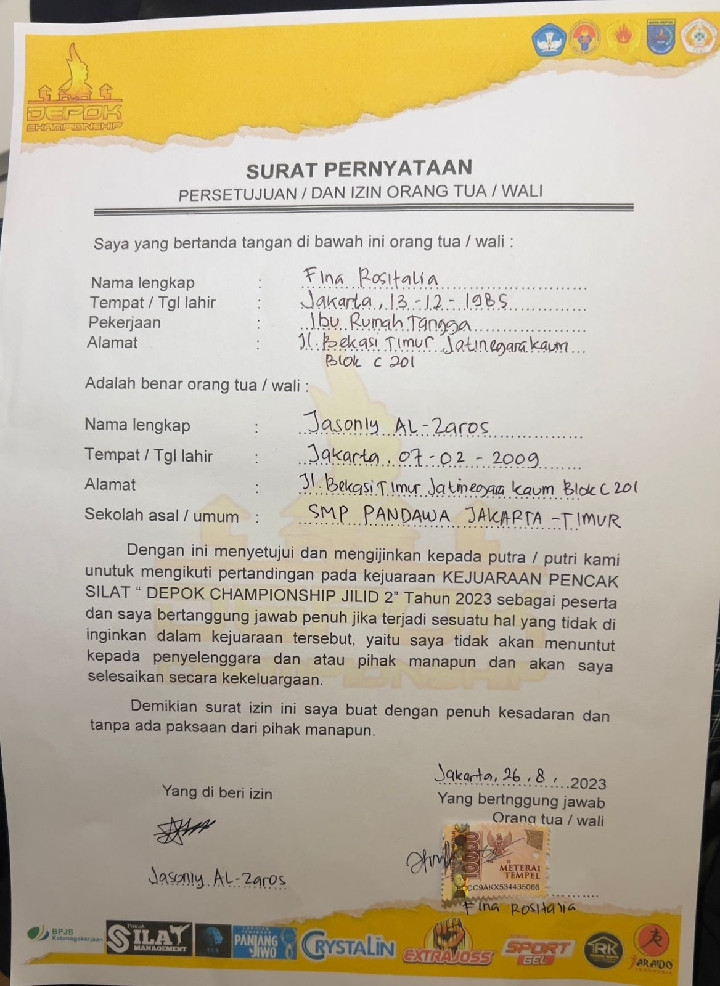 DEPOK
CHAMPIONSHIP
SURAT PERNYATAAN
PERSETUJUAN / DAN IZIN ORANG TUA / WALI
Saya yang bertanda tangan di bawah ini orang tua / wali :
Nama lengkap : Fina Rositalia
Tempat / Tgl lahir : Jakarta, 13-12-1985
Pekerjaan : Ibu Rumah Tangga
Alamat : Jl. Bekasi Timur Jatinegara kaum
Blok C 201
Adalah benar orang tua / wali :
Nama lengkap : Jasonly AL-Zaros
Tempat / Tgl lahir : Jakarta, 07-02-2009
Alamat : Jl. Bekasi Timur Jatinegara kaum Blok C 201
Sekolah asal / umum : SMP PANDAWA JAKARTA-TIMUR
Dengan ini menyetujui dan mengijinkan kepada putra / putri kami
unutuk mengikuti pertandingan pada kejuaraan KEJUARAAN PENCAK
SILAT " DEPOK CHAMPIONSHIP JILID 2" Tahun 2023 sebagai peserta
dan saya bertanggung jawab penuh jika terjadi sesuatu hal yang tidak di
inginkan dalam kejuaraan tersebut, yaitu saya tidak akan menuntut
kepada penyelenggara dan atau pihak manapun dan akan saya
selesaikan secara kekeluargaan.
Demikian surat izin ini saya buat dengan penuh kesadaran dan
tanpa ada paksaan dari pihak manapun.
Jakarta, 26.8.2023
Yang di beri izin
Yang bertnggung jawab
Orang tua / wali
10000
METERAI
TEMPEL
Jasonly AL-Zaros
Fina Rositalia
BPJS
Ketenagakerjaan
SILAT
MANAGEMENT
PANJANG
JIWO
CRYSTALIN
EXTRAJOSS
SPORT
GEL
RK
ARAIDO